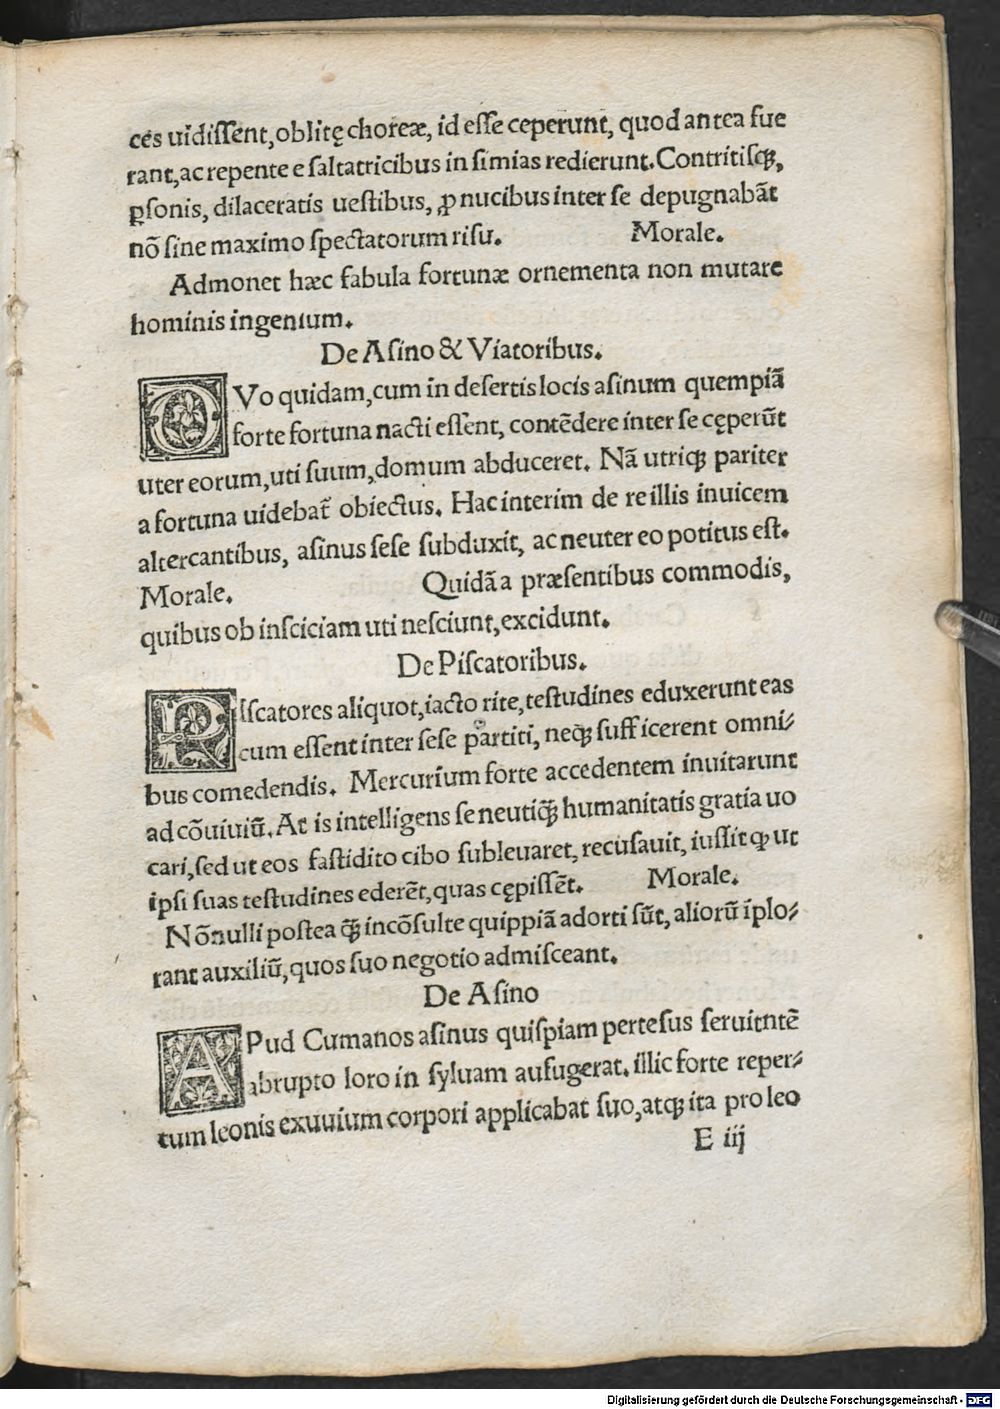 ces uidiſſent,oblitę choreæ, id eſſe ceperunt, quod antea fue
rant,ac repente e ſaltatricibus in ſimias redierunt.Contritiſꝗ,
ꝑſonis, dilaceratis ueſtibus, ꝓ nucibus inter ſe depugnabãt
nõ ſine maximo ſpectatorum riſu. Morale.
Admonet hæc fabula fortunæ ornementa non mutare
hominis ingenium.
De Aſino & Viatoribus.
DVo quidam,cum in deſertis locis aſinum quempiã
forte fortuna nacti eſſent, contẽdere inter ſe cęperũt
uter eorum,uti ſuum,domum abduceret. Nã utriꝗ pariter
a fortuna uidebat̃ obiectus. Hac interim de re illis inuicem
altercantibus, aſinus ſeſe ſubduxit, ac neuter eo potitus eſt.
Morale. Quidã a præſentibus commodis,
quibus ob inſciciam uti neſciunt,excidunt.
De Piſcatoribus.
PIſcatores aliquot,iacto rite,teſtudines eduxerunt eas
cum eſſent inter ſeſe partiti, neꝗ ſufficerent omni⸗
bus comedendis. Mercurium forte accedentem inuitarunt
ad cõuiuiũ.At is intelligens ſe neutiꝗ̃ humanitatis gratia uo
cari,ſed ut eos faſtidito cibo ſubleuaret, recuſauit, iuſſit ꝙ ut
ipſi ſuas teſtudines ederẽt,quas cępiſſẽt. Morale.
Nõnulli poſtea ꝗ̃ incõſulte quippiã adorti ſũt, aliorũ ĩplo⸗
rant auxiliũ,quos ſuo negotio admiſceant.
De Aſino
APud Cumanos aſinus quiſpiam perteſus ſeruitntẽ
abrupto loro in ſyluam aufugerat. illic forte reper⸗
tum leonis exuuium corpori applicabat ſuo,atꝗ ita pro leo
E iij
Digitalisierung gefördert durch die Deutsche Forschungsgemeinschaft - DFG